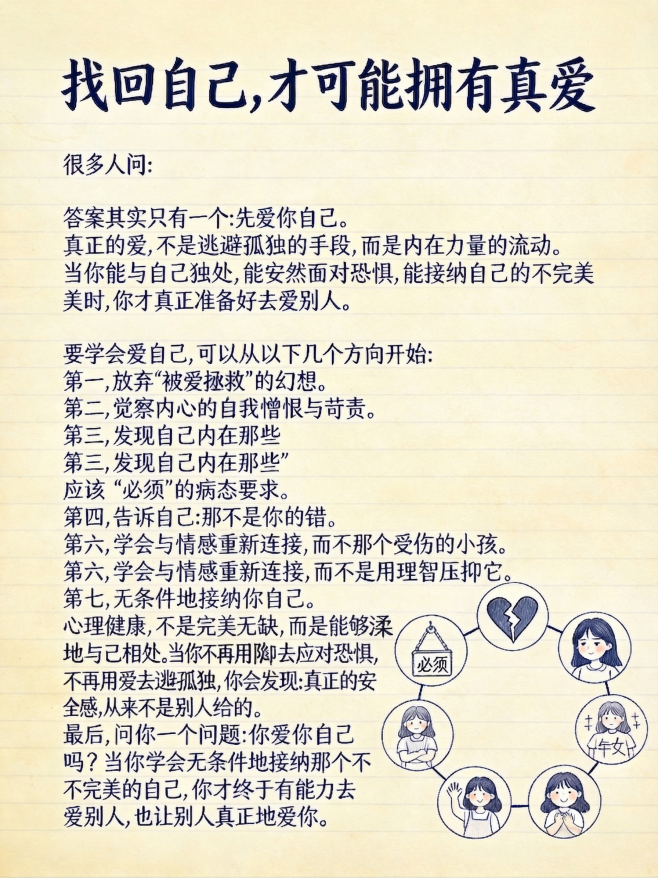 找回自己,才可能拥有真爱
很多人问:
答案其实只有一个:先爱你自己。
真正的爱,不是逃避孤独的手段,而是内在力量的流动。
当你能与自己独处,能安然面对恐惧,能接纳自己的不完美
美时,你才真正准备好去爱别人。
要学会爱自己,可以从以下几个方向开始:
第一,放弃“被爱拯救”的幻想。
第二,觉察内心的自我憎恨与苛责。
第三,发现自己内在那些
第三,发现自己内在那些”
应该 “必须”的病态要求。
第四,告诉自己:那不是你的错。
第六,学会与情感重新连接,而不那个受伤的小孩。
第六,学会与情感重新连接,而不是用理智压抑它。
第七,无条件地接纳你自己。
心理健康,不是完美无缺,而是能够柔
地与己相处。当你不再用去应对恐惧,
不再用爱去逃孤独,你会发现:真正的安
全感,从来不是别人给的。
最后,问你一个问题:你爱你自己
吗?当你学会无条件地接纳那个不
不完美的自己,你才终于有能力去
爱别人,也让别人真正地爱你。
必须